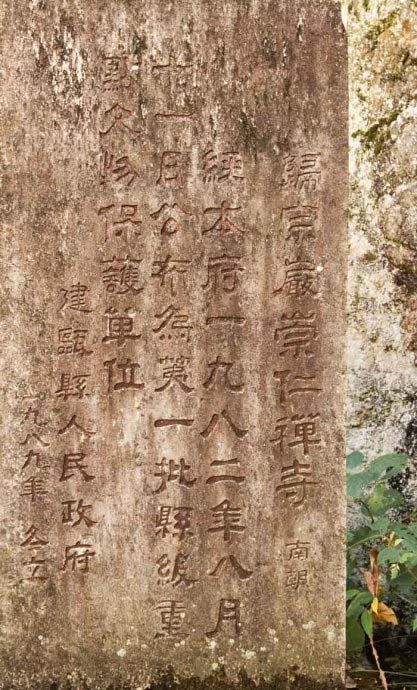 歸宗巖崇仁禪寺 南朝
經本府一九八二年八月
廿一日公布為第一批縣級重
點文物保護單位
建甌縣人民政府
一九八九年 公立